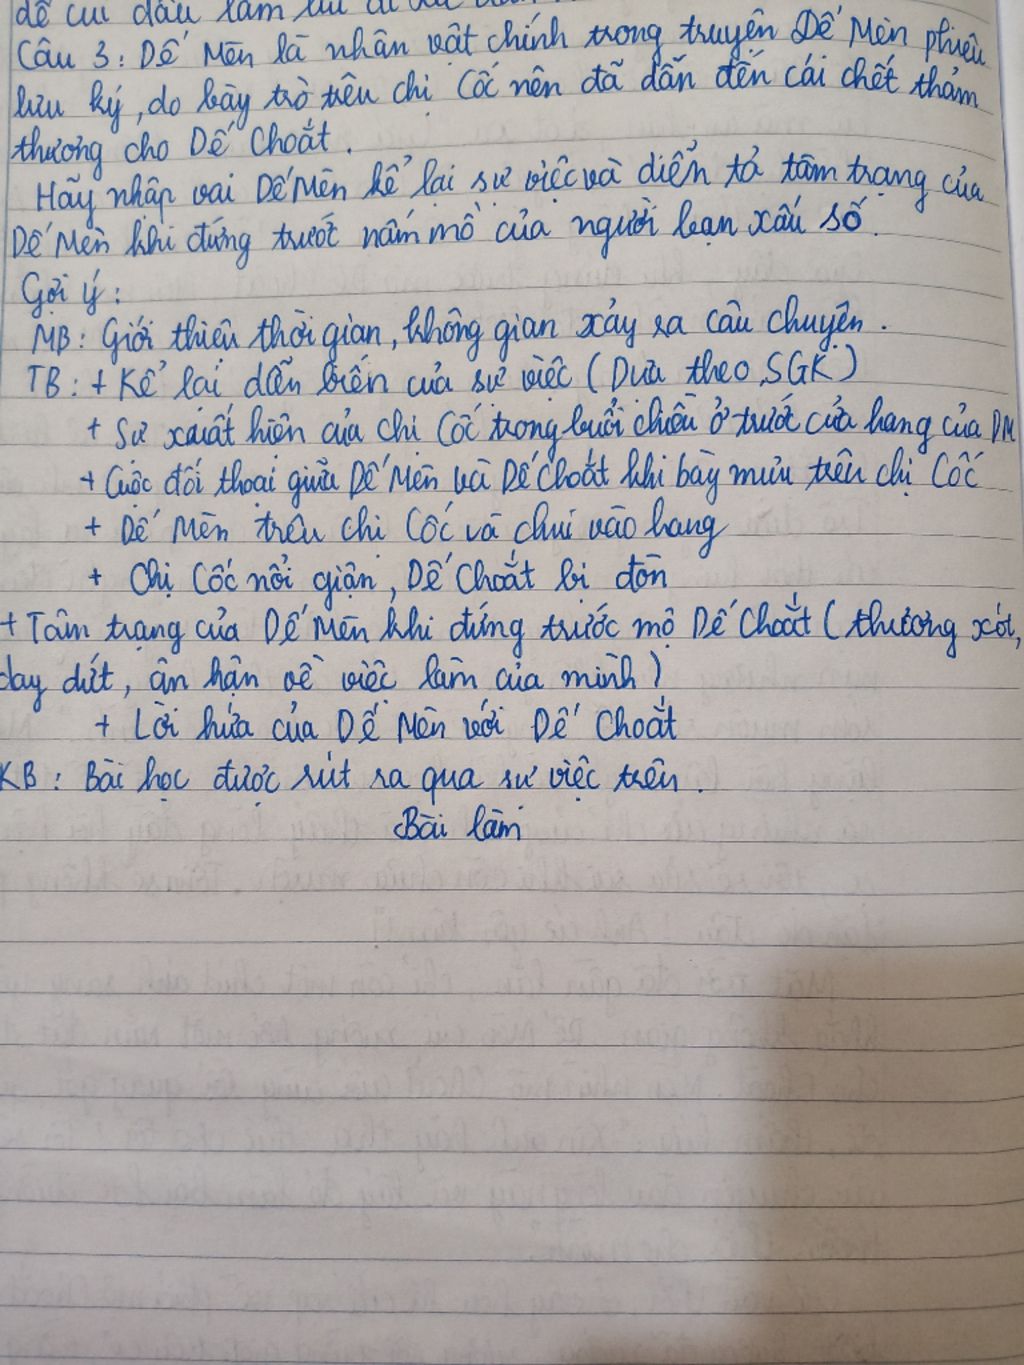 để cúi đầu làm
Câu 3: Dế Mèn là nhân vật chính trong truyện Dế Mèn phiêu
lưu ký, do bày trò trêu chị Cốc nên đã dẫn đến cái chết thảm
thương cho Dế Choắt.
Hãy nhập vai Dế Mèn kể lại sự việc và diễn tả tâm trạng của
Dế Mèn khi đứng trước nấm mồ của người bạn xấu số.
Gợi ý:
MB: Giới thiệu thời gian, không gian xảy ra câu chuyện.
TB: + Kể lại diễn biến của sự việc (Dựa theo SGK)
+ Sự xuất hiện của chị Cốc trong buổi chiều ở trước cửa hang của DM
+ Cuộc đối thoại giữa Dế Mèn và Dế Choắt khi bày mưu trêu chị Cốc
+ Dế Mèn trêu chị Cốc và chui vào hang
+ Chị Cốc nổi giận, Dế Choắt bị đòn
+ Tâm trạng của Dế Mèn khi đứng trước mộ Dế Choắt (thương xót,
day dứt, ân hận về việc làm của mình)
+ Lời hứa của Dế Mèn với Dế Choắt
KB: Bài học được rút ra qua sự việc trên.
Bài làm